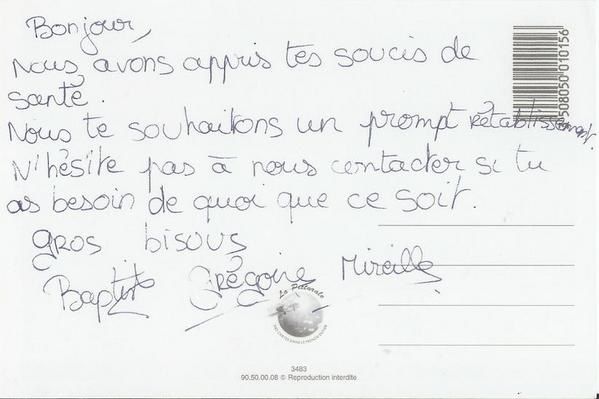 Bonjour,
Nous avons appris tes soucis de
santé.
Nous te souhaitons un prompt rétablissement.
N'hésite pas à nous contacter si tu
as besoin de quoi que ce soit.
gros bisous
Baptiste Grégoire Mireille
La Pitturale
3483
90.50.00.08 © Reproduction interdite
508050 010156